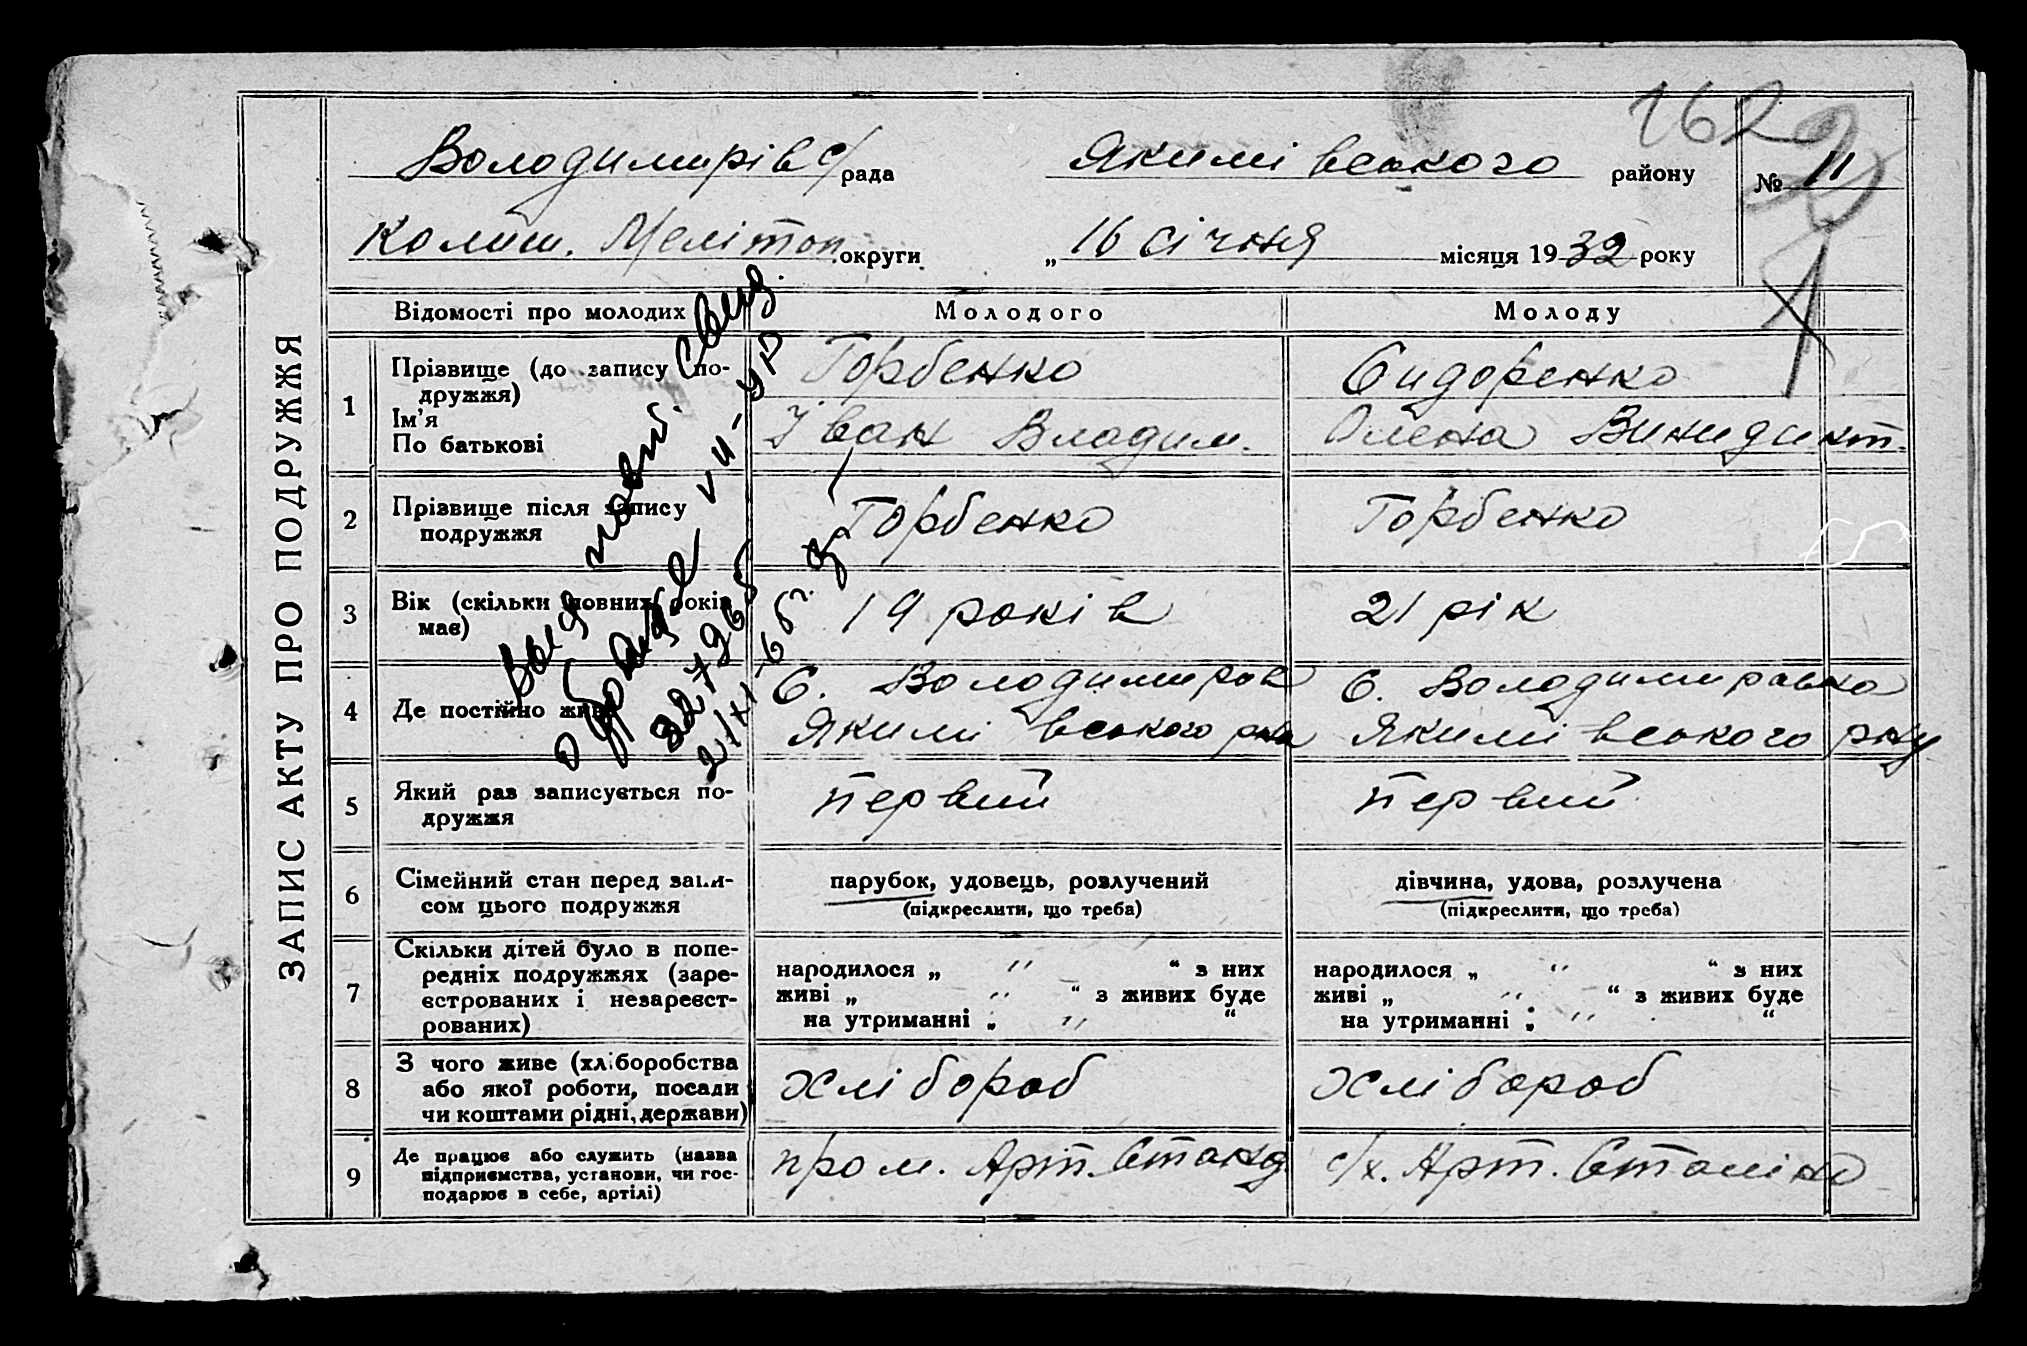 ЗАПИС АКТУ ПРО ПОДРУЖЖЯ
162
Володимирівс/рада Якимівського району № 11
Колиш. Мелітоп. округи „16 січня місяця 1932 року
Відомості про молодих Молодого Молоду
1 Прізвище (до запису по-
дружжя)
Ім'я
По батькові
Горбенко
Іван Владим.
Сидоренко
Олена Винидикт.
2 Прізвище після запису
подружжя
Горбенко
Горбенко
3 Вік (скільки повних років
має)
19 років
21 рік
4 Де постійно живе
С. Володимиров
Якимівського рна
С. Володимиравка
Якимівського рну
5 Який раз записується по-
дружжя
первий
первий
6 Сімейний стан перед запи-
сом цього подружжя
парубок, удовець, розлучений
(підкреслити, що треба)
дівчина, удова, розлучена
(підкреслити, що треба)
7 Скільки дітей було в попе-
редніх подружжях (заре-
єстрованих і незареєст-
рованих)
народилося „ " “ з них
живі „ " “ з живих буде
на утриманні „ " “
народилося „ " “ з них
живі „ " “ з живих буде
на утриманні „ " “
8 З чого живе (хліборобства
або якої роботи, посади
чи коштами рідні, держави)
хлібороб
хлібороб
9 Де працює або служить (назва
підприємства, установи, чи гос-
подарює в себе, артілі)
пром. Арт.
с/х. Арт. Сталіна
повт. свид.
о браке VII-УР
227965